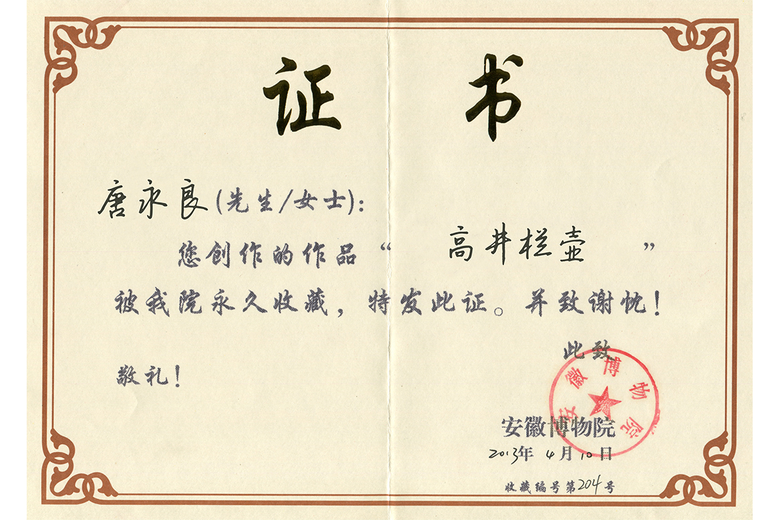 证 书
唐永良(先生/女士):
您创作的作品“ 高井栏壶 ”
被我院永久收藏，特发此证。并致谢忱！
此致
敬礼！
安徽博物院
安徽博物院
2013年 4月10日
收藏编号第204号